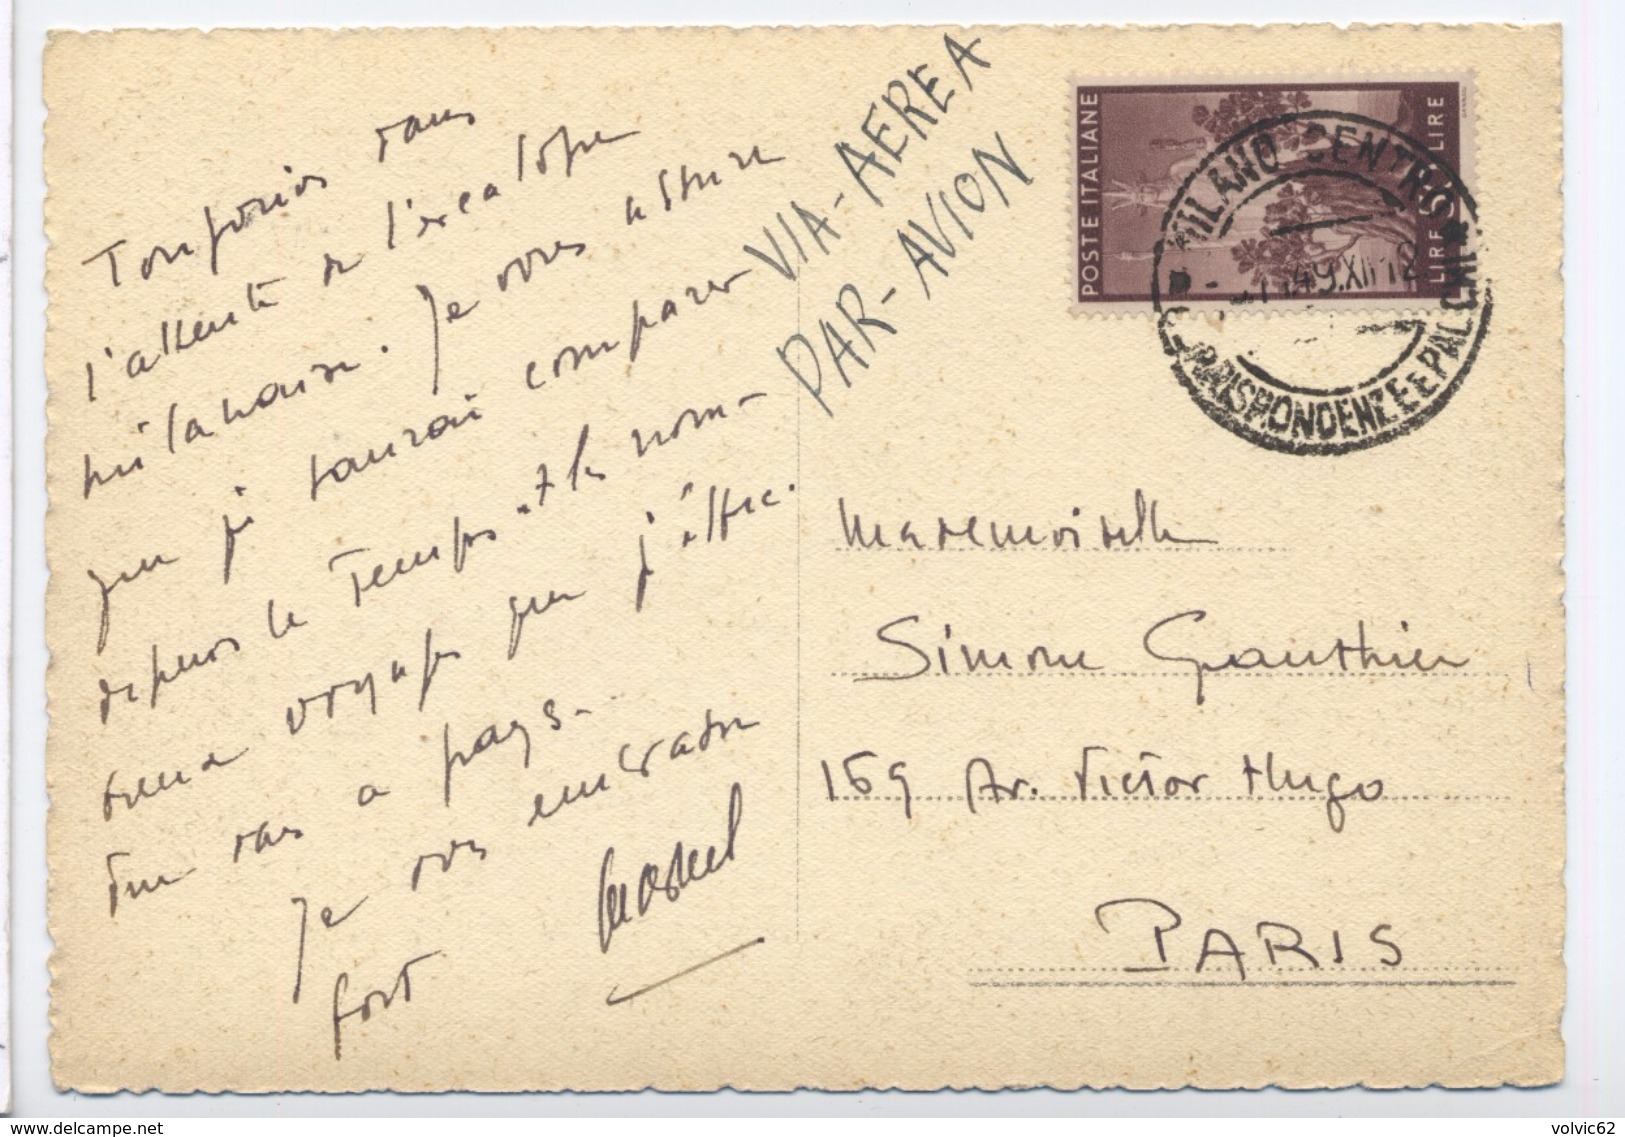 Toujours dans
l'attente de l'escalope
milanaise. Je vous assure
que je saurai comparer
depuis le temps et les nom-
breux voyages que j'attire.
Je vous embrasse
fort
VIA-AEREA
PAR-AVION
POSTE ITALIANE
LIRE 5 LIRE
MILANO CENTRO
CORRISPONDENZE E PAL
49.XII 12
Mademoiselle
Simone Gauthier
169 Av. Victor Hugo
PARIS
www.delcampe.net
volvic62